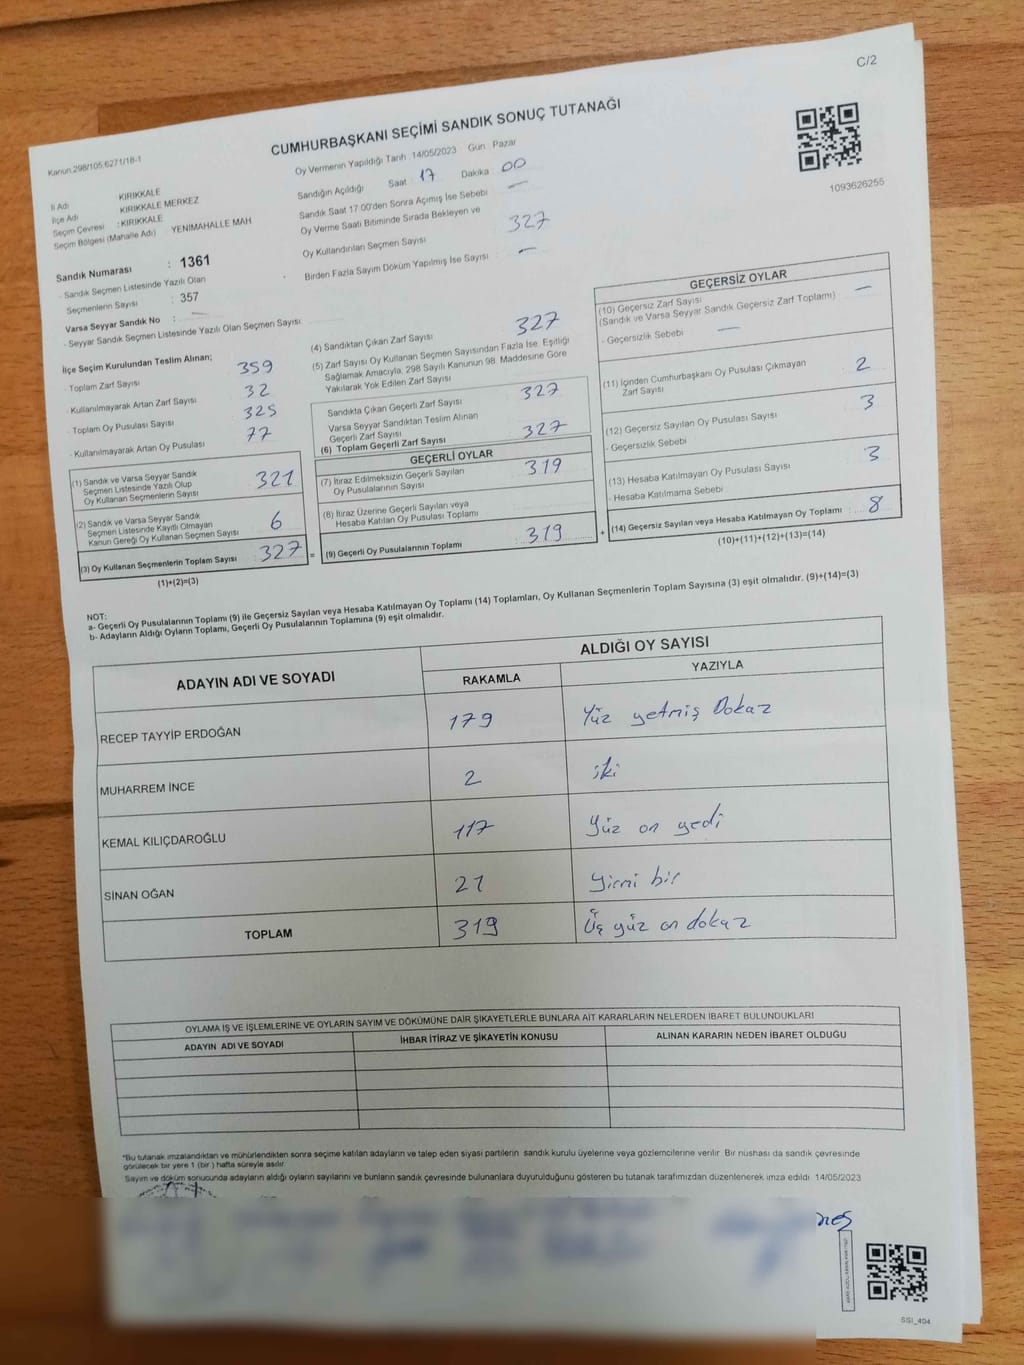 C/2
Kanun:298/105,6271/18-1
CUMHURBAŞKANI SEÇİMİ SANDIK SONUÇ TUTANAĞI
1093626255
İl Adı KIRIKKALE
İlçe Adı KIRIKKALE MERKEZ
Seçim Çevresi : KIRIKKALE
Seçim Bölgesi (Mahalle Adı) YENİMAHALLE MAH
Sandık Numarası : 1361
- Sandık Seçmen Listesinde Yazılı Olan
Seçmenlerin Sayısı : 357
Varsa Seyyar Sandık No :
- Seyyar Sandık Seçmen Listesinde Yazılı Olan Seçmen Sayısı
Oy Vermenin Yapıldığı Tarih 14/05/2023 Gün Pazar
Sandığın Açıldığı Saat 17 Dakika 00
Sandık Saat 17:00'den Sonra Açımış İse Sebebi —
Oy Verme Saati Bitiminde Sırada Bekleyen ve
Oy Kullandırılan Seçmen Sayısı 327
Birden Fazla Sayım Döküm Yapılmış İse Sayısı —
İlçe Seçim Kurulundan Teslim Alınan;
- Toplam Zarf Sayısı 359
- Kullanılmayarak Artan Zarf Sayısı 32
- Toplam Oy Pusulası Sayısı 325
- Kullanılmayarak Artan Oy Pusulası 77
(1) Sandık ve Varsa Seyyar Sandık
Seçmen Listesinde Yazılı Olup
Oy Kullanan Seçmenlerin Sayısı 321
(2) Sandık ve Varsa Seyyar Sandık
Seçmen Listesinde Kayıtlı Olmayan
Kanun Gereği Oy Kullanan Seçmen Sayısı 6
(3) Oy Kullanan Seçmenlerin Toplam Sayısı : 327 =
(1)+(2)=(3)
(4) Sandıktan Çıkan Zarf Sayısı 327
(5) Zarf Sayısı Oy Kullanan Seçmen Sayısından Fazla İse, Eşitliği
Sağlamak Amacıyla, 298 Sayılı Kanunun 98. Maddesine Göre
Yakılarak Yok Edilen Zarf Sayısı
Sandıkta Çıkan Geçerli Zarf Sayısı 327
Varsa Seyyar Sandıktan Teslim Alınan
Geçerli Zarf Sayısı
(6) Toplam Geçerli Zarf Sayısı 327
GEÇERLİ OYLAR
(7) İtiraz Edilmeksizin Geçerli Sayılan
Oy Pusulalarının Sayısı 319
(8) İtiraz Üzerine Geçerli Sayılan veya
Hesaba Katılan Oy Pusulası Toplamı
(9) Geçerli Oy Pusulalarının Toplamı : 319 +
GEÇERSİZ OYLAR
(10) Geçersiz Zarf Sayısı —
(Sandık ve Varsa Seyyar Sandık Geçersiz Zarf Toplamı)
- Geçersizlik Sebebi —
(11) İçinden Cumhurbaşkanı Oy Pusulası Çıkmayan
Zarf Sayısı 2
(12) Geçersiz Sayılan Oy Pusulası Sayısı 3
- Geçersizlik Sebebi
(13) Hesaba Katılmayan Oy Pusulası Sayısı 3
- Hesaba Katılmama Sebebi
(14) Geçersiz Sayılan veya Hesaba Katılmayan Oy Toplamı : 8
(10)+(11)+(12)+(13)=(14)
NOT:
a- Geçerli Oy Pusulalarının Toplamı (9) ile Geçersiz Sayılan veya Hesaba Katılmayan Oy Toplamı (14) Toplamları, Oy Kullanan Seçmenlerin Toplam Sayısına (3) eşit olmalıdır. (9)+(14)=(3)
b- Adayların Aldığı Oyların Toplamı, Geçerli Oy Pusulalarının Toplamına (9) eşit olmalıdır.
ADAYIN ADI VE SOYADI
ALDIĞI OY SAYISI
RAKAMLA YAZIYLA
RECEP TAYYİP ERDOĞAN 179 Yüz yetmiş Dokuz
MUHARREM İNCE 2 iki
KEMAL KILIÇDAROĞLU 117 Yüz on yedi
SİNAN OĞAN 21 yirmi bir
TOPLAM 319 Üç yüz on dokuz
OYLAMA İŞ VE İŞLEMLERİNE VE OYLARIN SAYIM VE DÖKÜMÜNE DAİR ŞİKAYETLERLE BUNLARA AİT KARARLARIN NELERDEN İBARET BULUNDUKLARI
ADAYIN ADI VE SOYADI İHBAR İTİRAZ VE ŞİKAYETİN KONUSU ALINAN KARARIN NEDEN İBARET OLDUĞU
*Bu tutanak imzalandıktan ve mühürlendikten sonra seçime katılan adayların ve talep eden siyasi partilerin sandık kurulu üyelerine veya gözlemcilerine verilir. Bir nüshası da sandık çevresinde
görülecek bir yere 1 (bir) hafta süreyle asılır.
Sayım ve döküm sonucunda adayların aldığı oyların sayılarını ve bunların sandık çevresinde bulunanlara duyurulduğunu gösteren bu tutanak tarafımızdan düzenlenerek imza edildi 14/05/2023
SSI_404